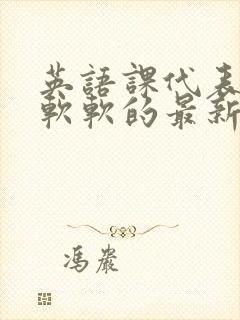 英語課代表
軟軟的最新
馮巖